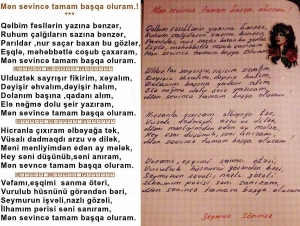 Mən sevincə tamam başqa oluram.!
***
Qəlbim fəsillərin yazına bənzər,
Ruhum çalğıların sazına bənzər,
Parıldar ,nur saçar baxan bu gözlər,
Eşqlə, məhəbbətlə coşub çaxaram,
Mən sevincə tamam başqa oluram.
Ulduztək sayrışır fikirim, xəyalım,
Dəyişir əhvalım,dəyişir halım,
Dolanm başına ,qadanı alım,
Elə nəğmə dolu şeir yazaram,
Mən sevincə tamam başqa oluram.
Hicranla çıxıram əlbəyağa tək,
Vüsalı dadmaqdı arzu və dilək,
Məni mənliyimdən edən ay mələk,
Hey səni düşünüb,səni anıram,
Mən sevncə tamam başqa oluram.
Vəfamı,eşqimi sanma ötəri,
Vurulub hüsnünü görəndən bəri,
Seymurun işvəli,nazlı gözəli,
İlhamım perisi səni sanıram,
Mən sevincə tamam başqa oluram.
Mən sevincə tamam başqa oluram!
Qəlbim fəsillərin yazına bənzər,
Ruhum çalğıların sazına bənzər,
Parıldar, nur saçar baxan bu gözlər,
Eşqlə, məhəbbətlə coşub çaxaram,
Mən sevincə tamam başqa oluram.
Ulduztək sayrışır fikrim, xəyalım,
Dəyişir əhvalım, dəyişir halım,
Dolanım başına, qadanı alım,
Elə nəğmə dolu şeir yazaram,
Mən sevincə tamam başqa oluram.
Hicranla çıxıram əlbəyağa tək,
Vüsalı dadmaqdı arzu və dilək,
Məni mənliyimdən edən ay mələk,
Hey səni düşünüb, səni anıram,
Mən sevincə tamam başqa oluram.
Vəfamı, eşqimi sanma ötəri,
Vurulub hüsnünü görəndən bəri,
Seymurun işvəli, nazlı gözəli,
İlhamım perisi səni sanıram,
Mən sevincə tamam başqa oluram.
Seymur Sönməz